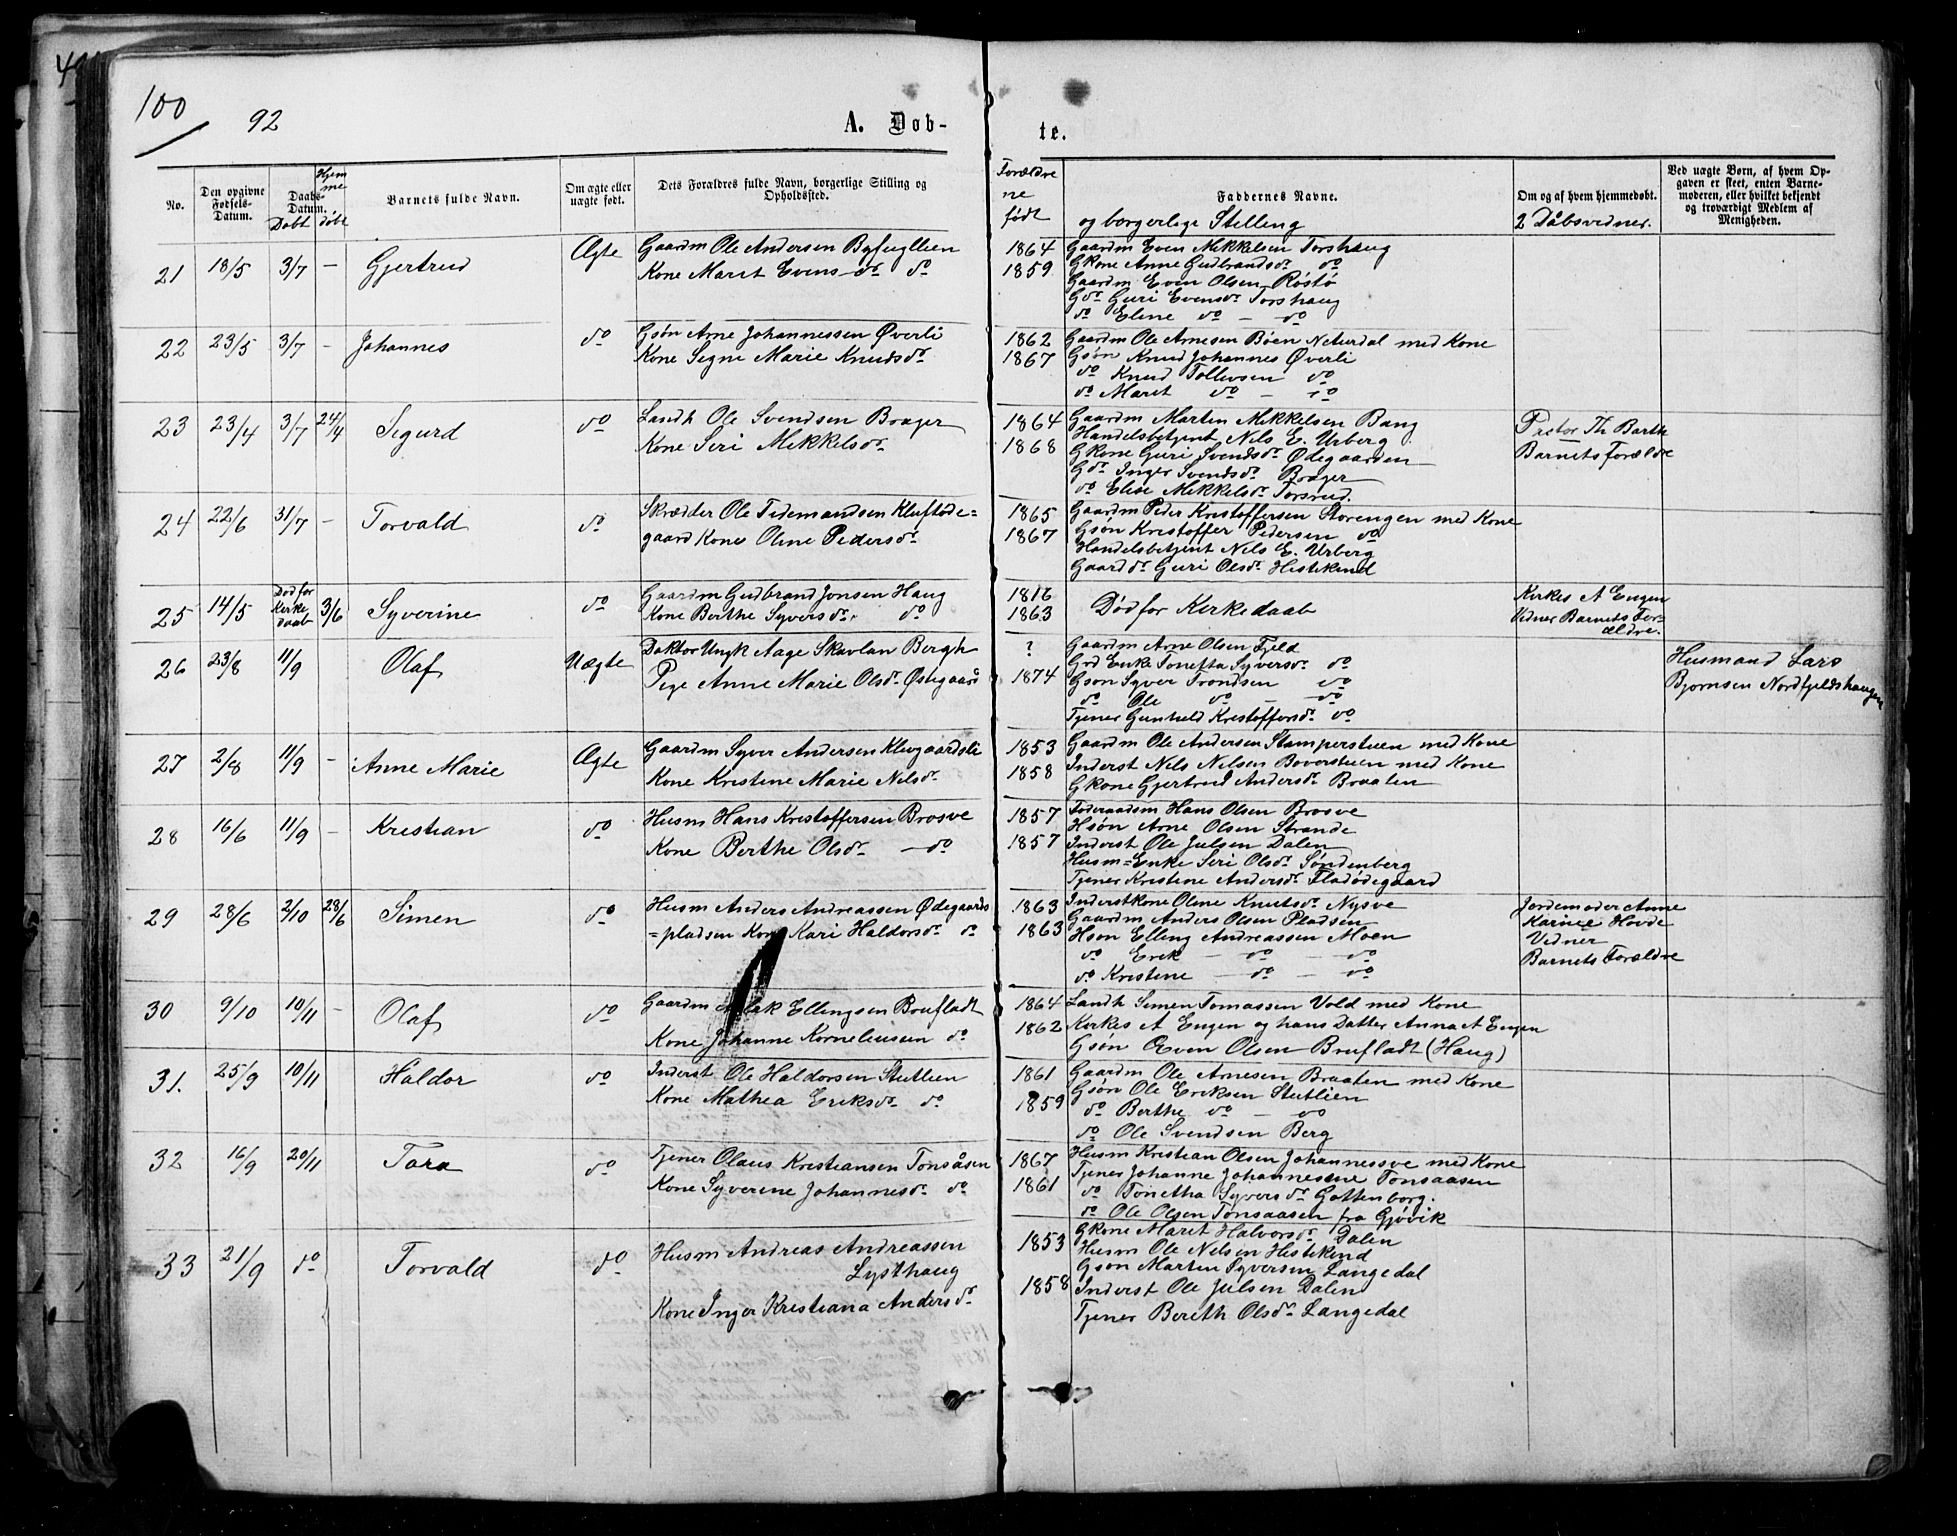 100
92
A. Døb-
te.
No.
Den opgivne Fødsels-Datum.
Daabs-Datum.
Døbt
Hjemmedøbt
Barnets fulde Navn.
Om ægte eller uægte født.
Dets Forældres fulde Navn, borgerlige Stilling og Opholdssted.
Forældrene født
Faddernes Navne.
og borgerlige Stelling
Om og af hvem hjemmedøbt.
2 Dåbsvidner.
Ved uægte Børn, af hvem Opgaven er skeet, enten Barnemoderen, eller hvilket bekjendt og troværdigt Medlem af Menigheden.
21 18/5 3/7 — Gjertrud Ægte
Gaardm Ole Andersen Byfuglien
Kone Marit Evens do do
1864
1859
Gaardm Even Mikkelsen Torshaug
Gkone Anne Gudbrandsdr do
Gaardm Even Olsen Røstø
Gdr Guri Evensdr Torshaug
do Eline do — do
22 23/5 3/7 — Johannes do
Gsøn Arne Johannessen Øverli
Kone Segne Marie Knudsdr
1862
1867
Gaardm Ole Arnesen Bøen Neterdal med Kone
Gsøn Knud Johannes Øverli
do Knud Tollevsen do
do Marit do — do
23 23/4 3/7 24/4 Sigurd do
Landh Ole Svendsen Brager
Kone Seri Mikkelsdr
1864
1868
Gaardm Martin Mikkelsen Bang
Handelsbetjent Nils E. Urberg
Gkone Guri Svendsdr Ødegaarden
Gdr Inger Svendsdr Brager
do Elise Mikkelsdr Torsrud.
Pastor Th Barth
Barnets Forældre
24 22/6 31/7 — Torvald do
Skrædder Ole Tidemandsen Kluftøde=
gaard Kone Oline Pedersdr
1865
1867
Gaardm Peder Kristoffersen Storengen med Kone
Gsøn Kristoffer Pedersen do
Handelsbetjent Nils E. Urberg
Gaarddr Guri Olsdr Hestekind
25 14/5 Død før Kirke daab 3/6 Syverine do
Gaardm Gudbrand Jonsen Haug
Kone Berthe Syversdr do
1816
1863
Død for Kirkedaab
Kirkes A Engen
Vidner Barnets For=
ældre.
26 23/8 11/9 Olaf Uægte
Doktor Ungk Aage Skavlan Bergh
Pige Anne Marie Olsdr Østegaard
?
1874
Gaardm Arne Olsen Fjeld
Grd Enke Tonetta Syversdr do
Gsøn Syver Trondsen do
do Ole do — do
Tjener Gunhild Kristoffersdr do
Husmand Lars
Bjørnsen Nordfjeldshaugen
27 2/8 11/9 — Anne Marie Ægte
Gaardm Syver Andersen Klevgaardsli
Kone Kristine Marie Nilsdr
1853
1858
Gaardm Ole Andersen Stamperstuen med Kone
Inderst Nils Nilsen Boverstuen med Kone
Gkone Gjertrud Andersdr Braaten
28 16/6 11/9 — Kristian do
Husm Hans Kristoffersen Brosve
Kone Berthe Olsdr — do
1857
1857
Føderaadsm Hans Olsen Brosve
Hsøn Arne Olsen Strande
Inderst Ole Julsen Dalen
Husm=Enke Seri Olsdr Søndenberg
Tjener Kristine Andersdr Fladødegaard
29 28/6 2/10 28/6 Simen do
Husm Anders Andreassen Ødegaards
=pladsen Kone Kari Haldorsdr do
1863
1863
Inderstkone Oline Knutsdr Nysve
Gaardm Anders Olsen Pladsen
Hsøn Elling Andreassen Moen
do Erik — do — do
do Kristine — do — do
Jordemoder Anne
Karine Hovde
Vidner
Barnets Forældre
30 9/10 10/11 — Olaf do
Gaardm Ellingsen Brufladt
Kone Johanne Korneliussen do
1864
1862
Landh Simen Tomassen Vold med Kone
Kirkes A Engen og hans Datter Anna A Engen
Gsøn Even Olsen Brufladt (Haug)
31. 25/9 10/11 Haldor do
Inderst Ole Haldorsen Stutlien
Kone Mathea Eriksdr do
1861
1859
Gaardm Ole Arnesen Braaten med Kone
Gsøn Ole Eriksen Stutlien
do Berthe do — do
do Ole Svendsen Berg
32 16/9 20/11 Tora do
Tjener Olaus Kristiansen Tonsåsen
Kone Syverine Johannesdr do
1867
1861
Husm Kristian Olsen Johannessve med Kone
Tjener Johanne Johannesene Tonsaasen
do Tonetha Syversdr Gottenborg.
do Ole Olsen Tonsaasen fra Gjøvik
33 21/9 do Torvald do
Husm Andreas Andreassen
Lysthaug
Kone Inger Kristiana Andersdr
1853
1858
Gkone Marit Halvorsdr Dalen
Husm Ole Nilsen Hestekind
Gsøn Martin Syversen Langedal
Inderst Ole Julsen Dalen
Tjener Bereth Olsdr Langedal